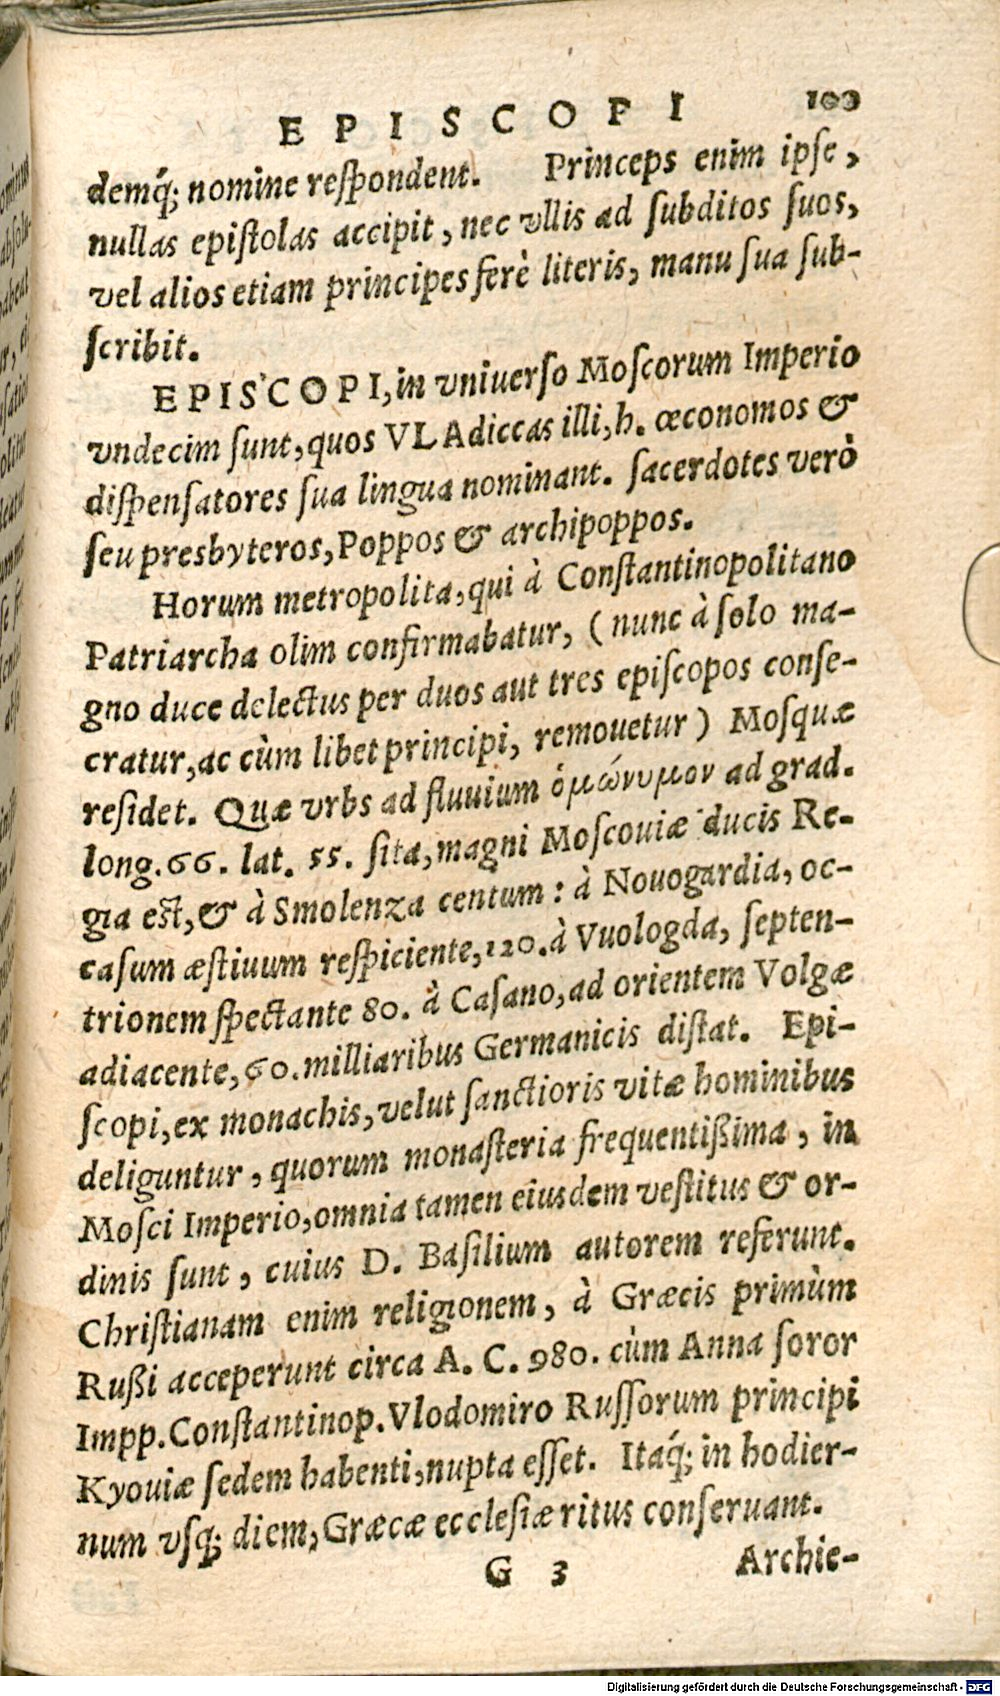 EPISCOPI 100
demq́; nomine reſpondent. Princeps enim ipſe,
nullas epiſtolas accipit, nec vllis ad ſubditos ſuos,
vel alios etiam principes ferè literis, manu ſua ſub-
ſcribit.
EPISCOPI, in vniuerſo Moſcorum Imperio
vndecim ſunt, quos VLAdiccas illi, h. œconomos &
diſpenſatores ſua lingua nominant. ſacerdotes verò
ſeu presbyteros, Poppos & archipoppos.
Horum metropolita, qui à Conſtantinopolitano
Patriarcha olim confirmabatur, (nunc à ſolo ma-
gno duce delectus per duos aut tres epiſcopos conſe-
cratur, ac cùm libet principi, remouetur) Moſquæ
reſidet. Quæ vrbs ad fluuium ὁμώνυμον ad grad.
long. 66. lat. 55. ſita, magni Moſcouiæ ducis Re-
gia eſt, & à Smolenza centum: à Nouogardia, oc-
caſum æſtiuum reſpiciente, 120. à Vuologda, ſepten-
trionem ſpectante 80. à Caſano, ad orientem Volgæ
adiacente, 60. milliaribus Germanicis diſtat. Epi-
ſcopi, ex monachis, velut ſanctioris vitæ hominibus
deliguntur, quorum monaſteria frequentißima, in
Moſci Imperio, omnia tamen eiusdem veſtitus & or-
dinis ſunt, cuius D. Baſilium autorem referunt.
Chriſtianam enim religionem, à Græcis primùm
Rußi acceperunt circa A. C. 980. cùm Anna ſoror
Impp. Conſtantinop. Vlodomiro Ruſſorum principi
Kyouiæ ſedem habenti, nupta eſſet. Itaq́; in hodier-
num vſq; diem, Græcæ eccleſiæ ritus conſeruant.
G 3 Archie-
Digitalisierung gefördert durch die Deutsche Forschungsgemeinschaft - DFG